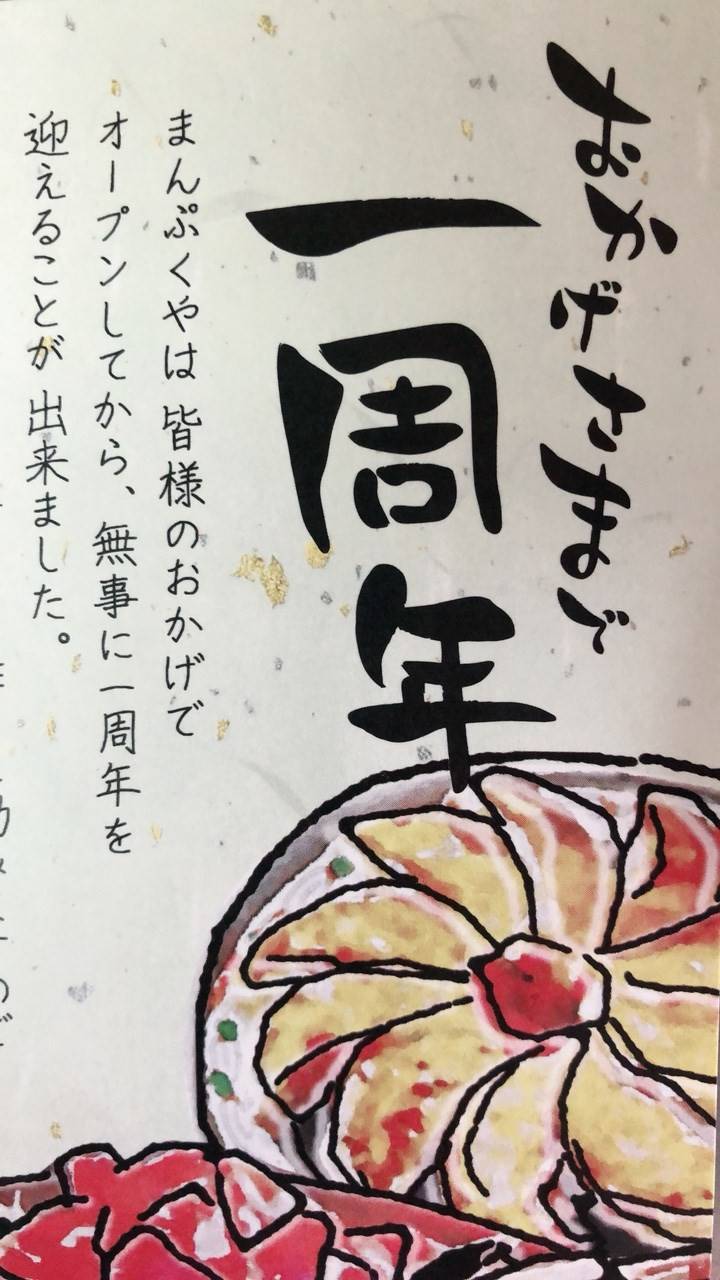 おかげさまで
一周年
まんぷくやは 皆様のおかげで
オープンしてから、無事に一周年を
迎えることが 出来ました。